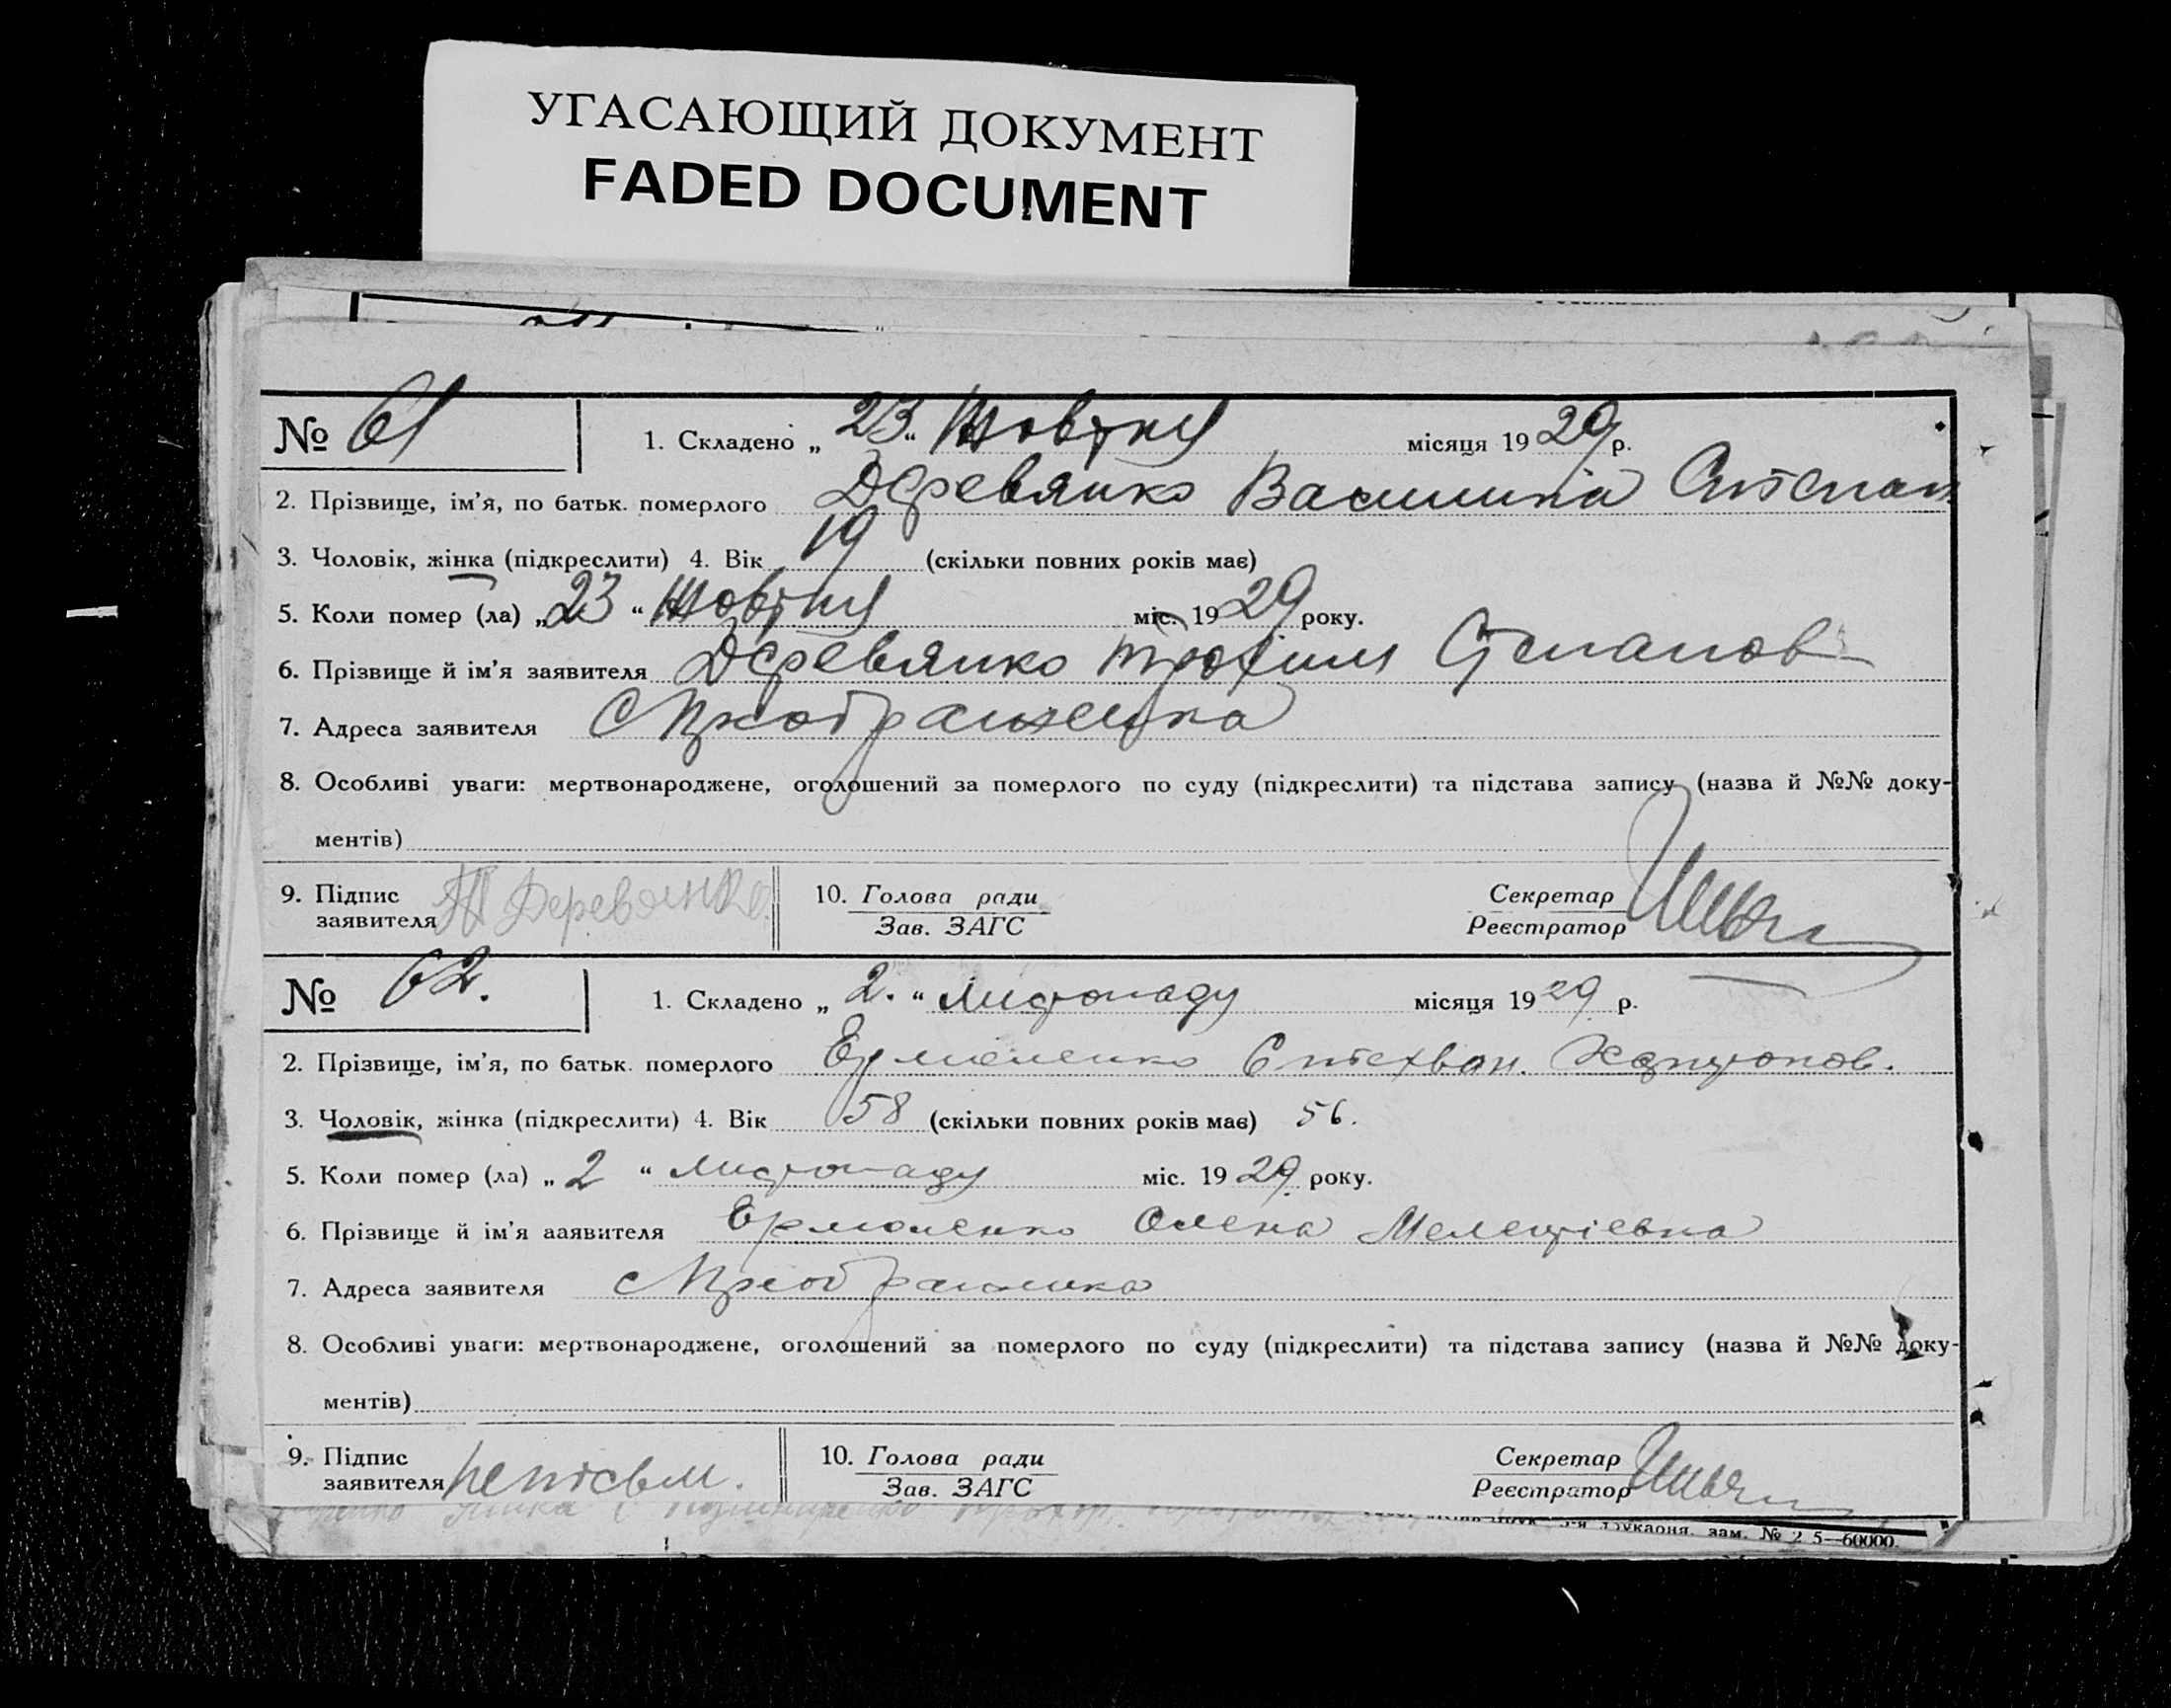 УГАСАЮЩИЙ ДОКУМЕНТ
FADED DOCUMENT
№ 61 1. Складено „ 23 “ Жовтня місяця 1929 р.
2. Прізвище, ім’я, по батьк. померлого Деревянко Василина Степан
3. Чоловік, жінка (підкреслити) 4. Вік 19 (скільки повних років має)
5. Коли помер (ла) „ 23 “ Жовтня міс. 1929 року.
6. Прізвище й ім’я заявителя Деревянко Трохим Степанов
7. Адреса заявителя с
8. Особливі уваги: мертвонароджене, оголошений за померлого по суду (підкреслити) та підстава запису (назва й №№ доку-
ментів)
9. Підпис заявителя Т Деревянко. 10. Голова ради Зав. ЗАГС Секретар Реєстратор
№ 62. 1. Складено „ 2. “ Листопаду місяця 1929 р.
2. Прізвище, ім’я, по батьк. померлого Ермоленко
3. Чоловік, жінка (підкреслити) 4. Вік 58 (скільки повних років має) 56.
5. Коли помер (ла) „ 2 “ Листопаду міс. 1929 року.
6. Прізвище й ім’я ааявителя Ермоленко Олена Мелетіевна
7. Адреса заявителя с
8. Особливі уваги: мертвонароджене, оголошений за померлого по суду (підкреслити) та підстава запису (назва й №№ доку-
ментів)
9. Підпис заявителя непісьм. 10. Голова ради Зав. ЗАГС Секретар Реєстратор
зам. № 2 5—60000.